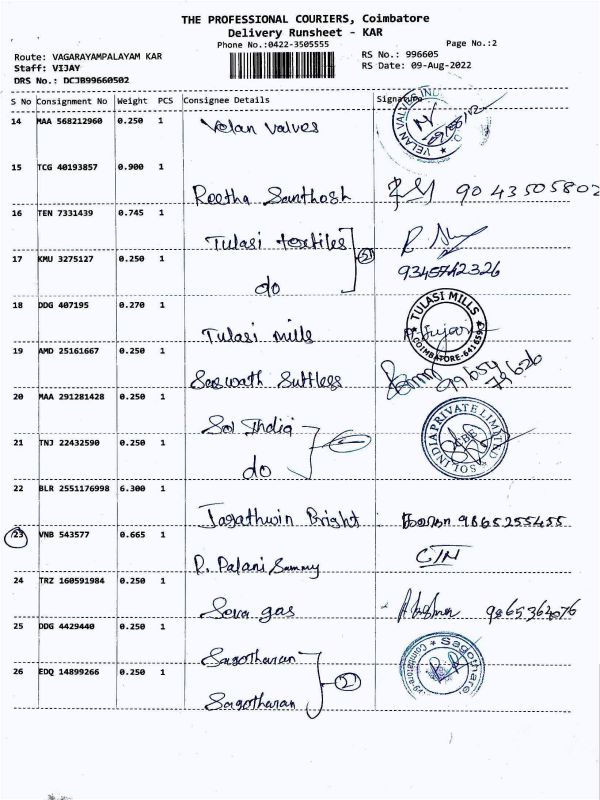 THE PROFESSIONAL COURIERS, Coimbatore
Delivery Runsheet - KAR
Phone No.:0422-3505555
Page No.:2
Route: VAGARAYAMPALAYAM KAR
RS No.: 996605
Staff: VIJAY
RS Date: 09-Aug-2022
DRS No.: DCJB99660502
S No Consignment No Weight PCS Consignee Details Signature
14 MAA 568212960 0.250 1 Velan valves
VELAN VALVES IND
15 TCG 40193857 0.900 1 Reetha Santhosh 9043505802
16 TEN 7331439 0.745 1 Tulasi textiles
17 KMU 3275127 0.250 1 do
18 DDG 407195 0.270 1 Tulasi mills
TULASI MILLS
COIMBATORE-641659
19 AMD 25161667 0.250 1 Saswath Suttless
20 MAA 291281428 0.250 1 Sol India
21 TNJ 22432590 0.250 1 do
SOL INDIA PRIVATE LIMITED
CBE
22 BLR 2551176998 6.300 1 Jagathwin Bright 9865255455
23 VNB 543577 0.665 1 R. Palani Sammy
24 TRZ 160591984 0.250 1 Seva gas 9865364076
25 DDG 4429440 0.250 1 Sagotharan
26 EDQ 14899266 0.250 1 Sagotharan